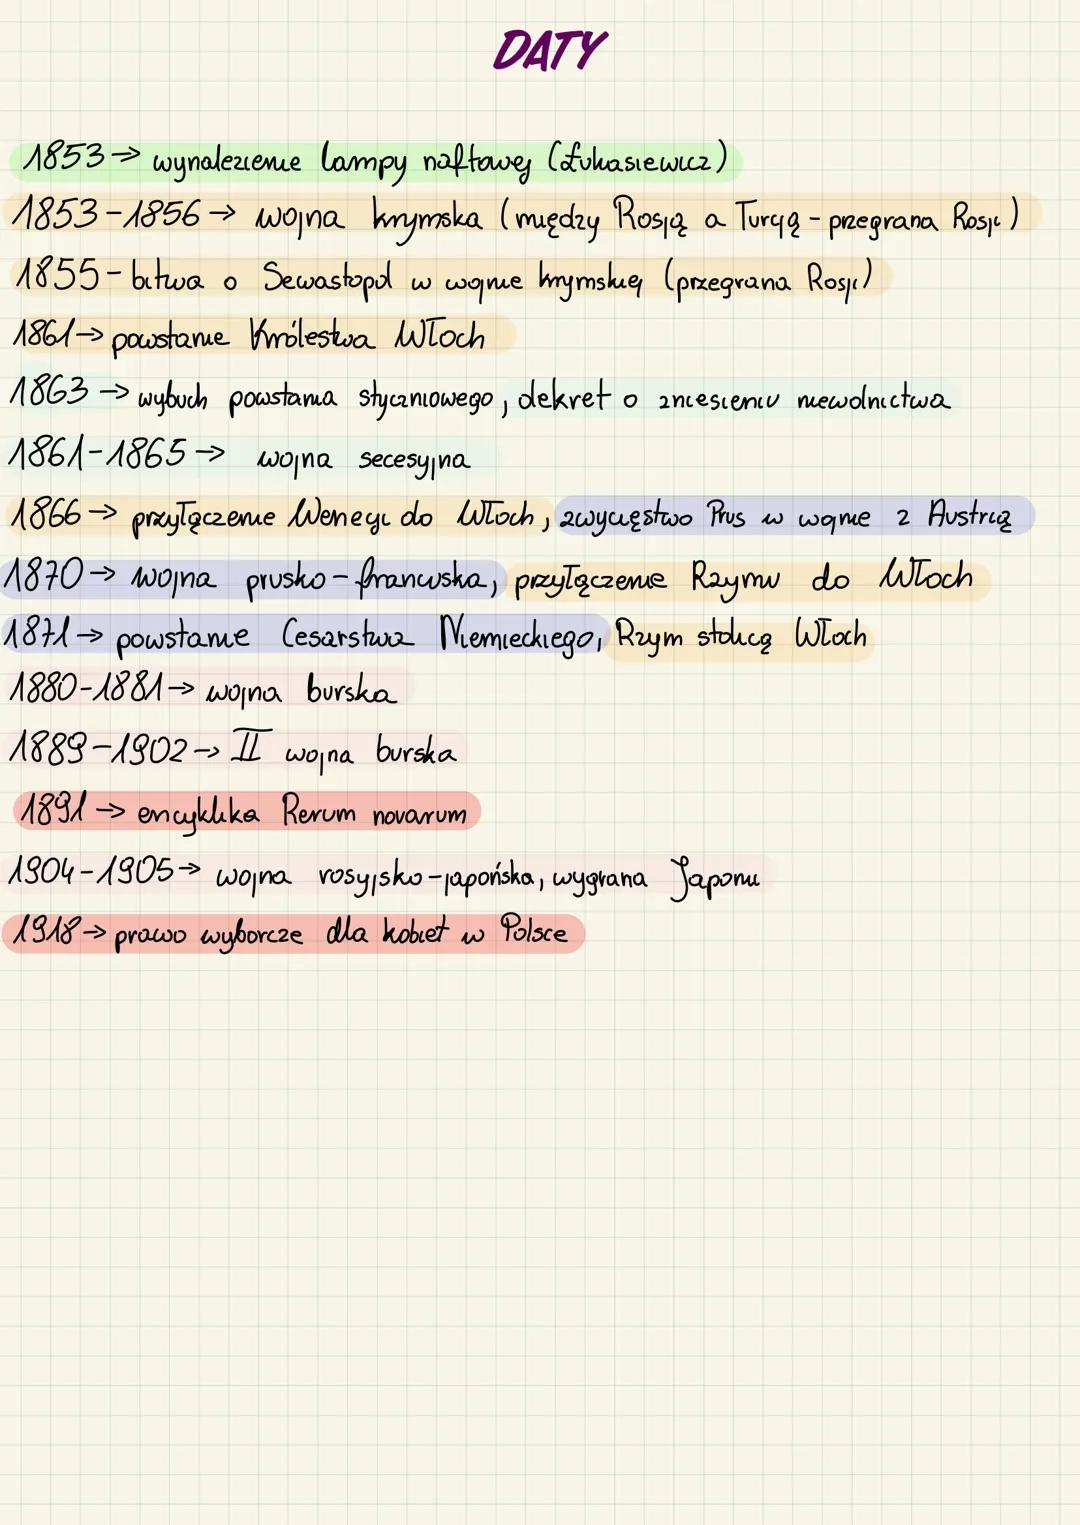 DATY
1853 → wynalezienie lampy naftowej (Łukasiewicz)
1853-1856 → wojna krymska (między Rosją a Turcją - przegrana Rosji)
1855 - bitwa o Sewastopol w wojnie krymskiej (przegrana Rosji)
1861 → powstanie Królestwa Włoch
1863 → wybuch powstania styczniowego, dekret o zniesieniu niewolnictwa
1861-1865 → wojna secesyjna
1866 → przyłączenie Wenecji do Włoch, zwycięstwo Prus w wojnie z Austrią
1870 → wojna prusko-francuska, przyłączenie Rzymu do Włoch
1871 → powstanie Cesarstwa Niemieckiego, Rzym stolicą Włoch
1880-1881 → wojna burska
1889-1902 → II wojna burska
1891 → encyklika Rerum novarum
1904-1905 → wojna rosyjsko-japońska, wygrana Japonii
1918 → prawo wyborcze dla kobiet w Polsce